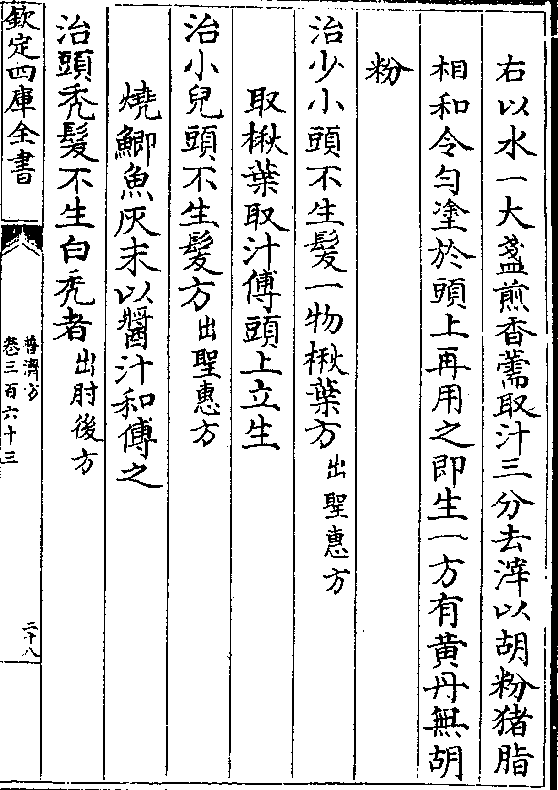 右以水一大盞煎香薷取汁三分去滓以胡粉猪脂
相和令勻塗於頭上再用之即生一方有黄丹無胡
粉
治少小頭不生髮一物楸葉方出聖惠方
取楸葉取汁傅頭上立生
治小兒頭不生髮方出聖惠方
燒鯽魚灰末以醬汁和傅之
治頭秃髮不生白秃者出肘後方
欽定四庫全書
普濟方
卷三百六十三
二十八